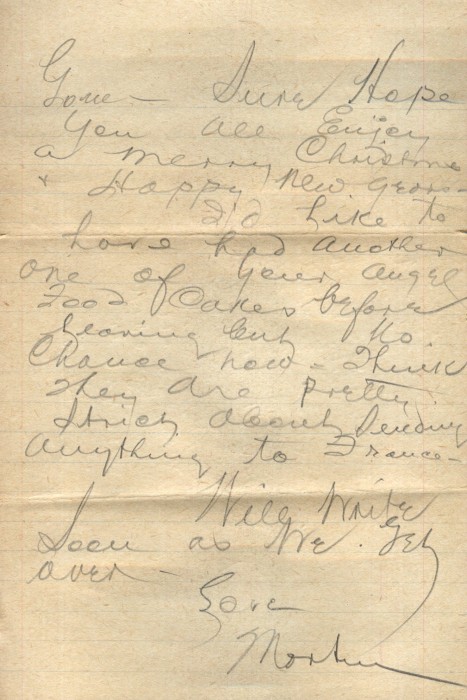 Gone - Sure Hope
You all Enjoy
a merry Christmas
+ Happy New Years -
I'd Like to
have had another
one of your angel
Food Cakes before
leaving but No
Chance now - Think
They are pretty
strict about sending
anything to France -
Will Write
Soon as We Get
over -
Love